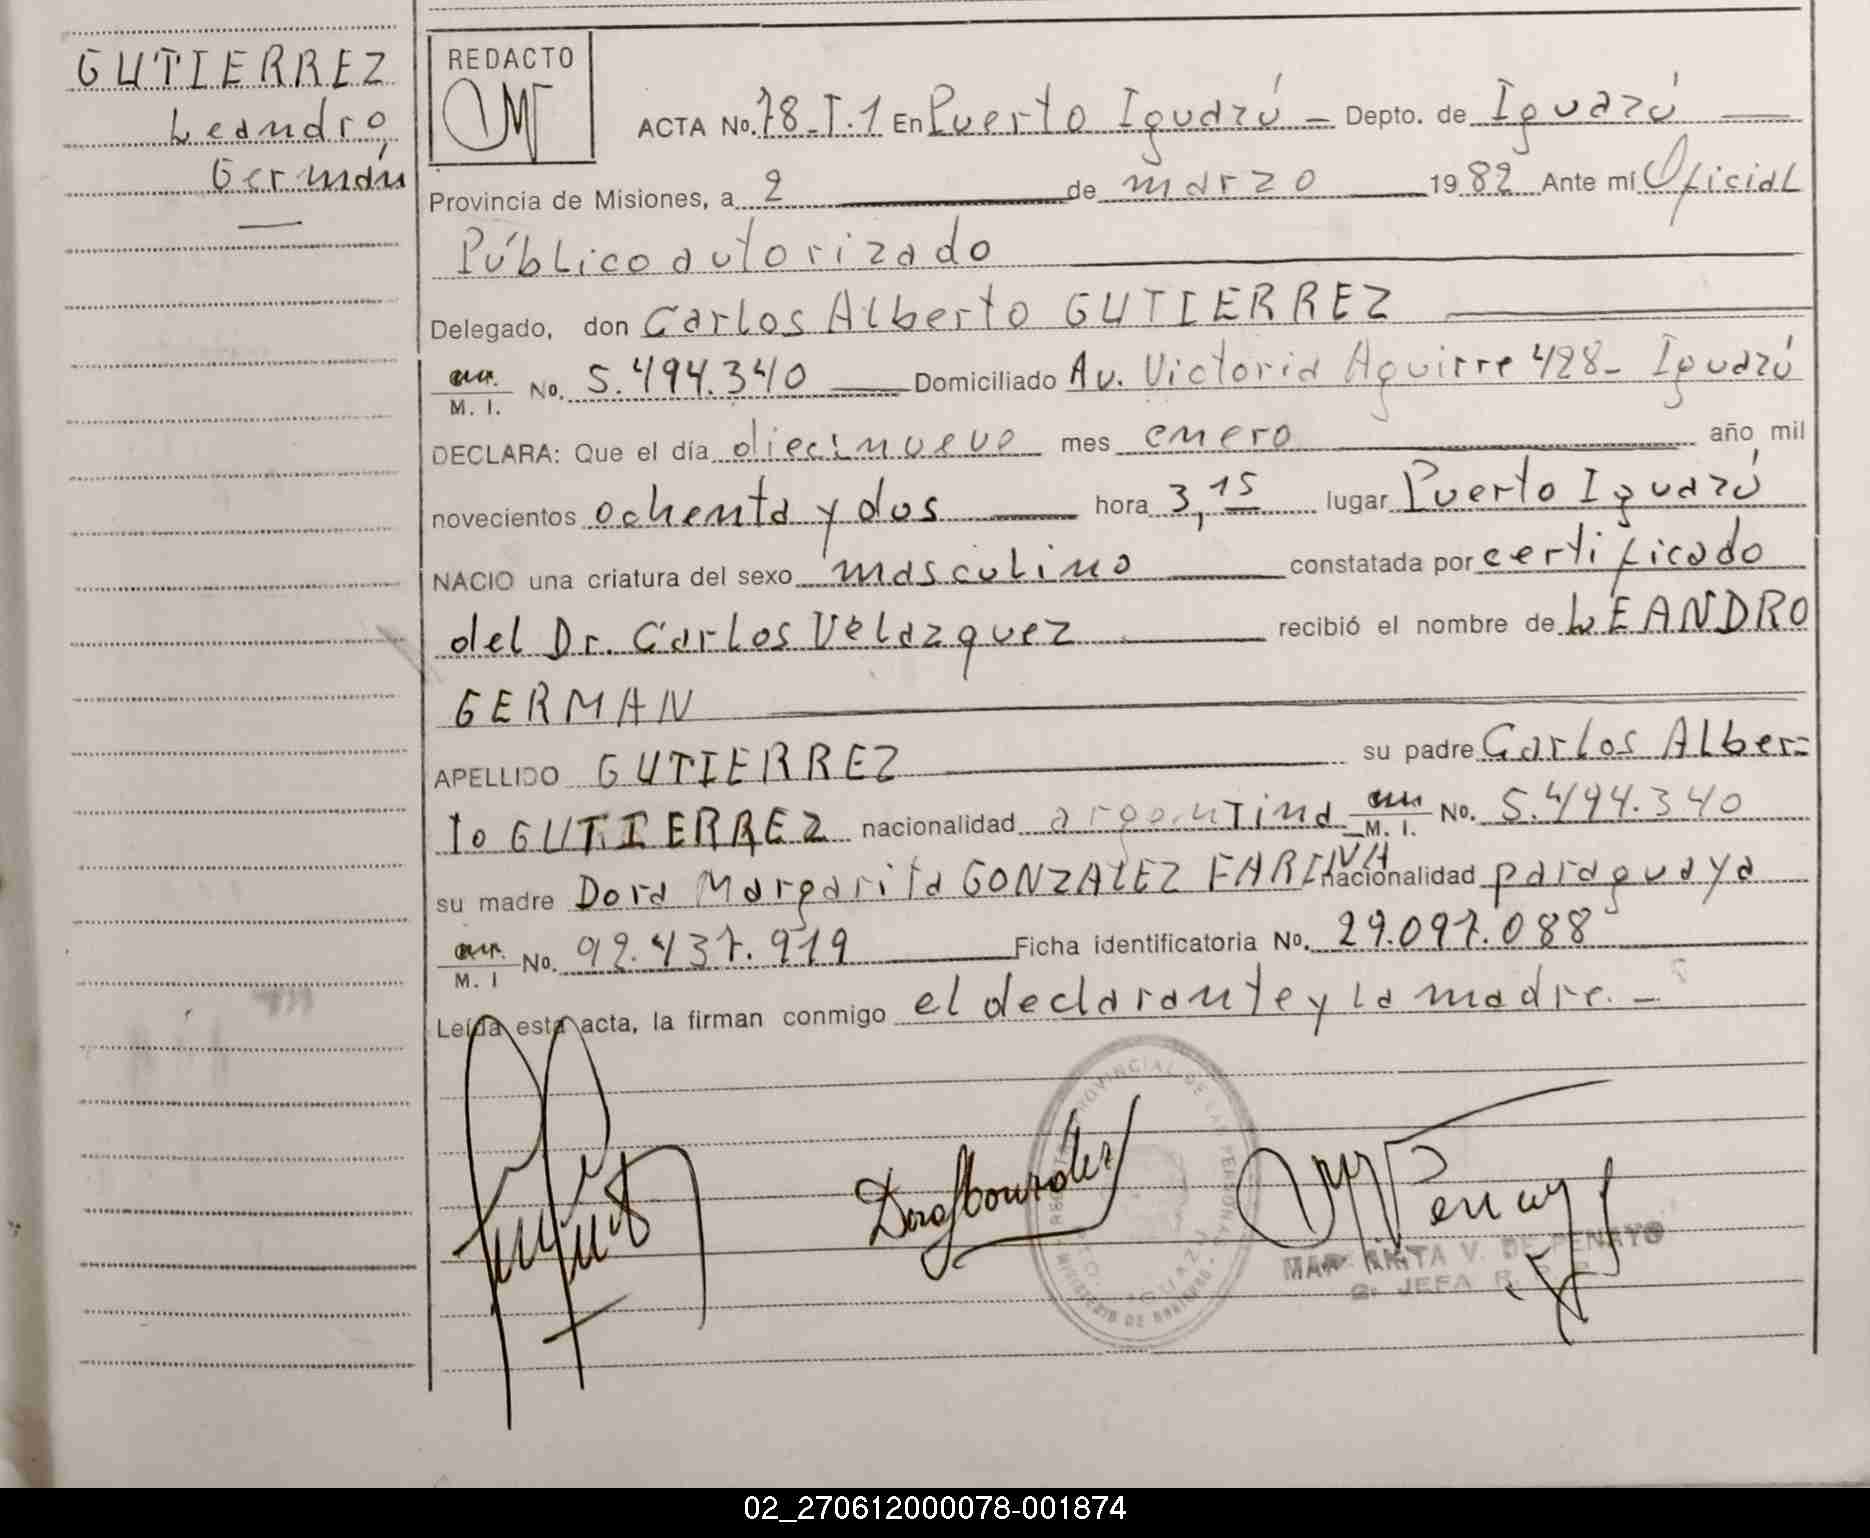 GUTIERREZ
Leandro
Germán
REDACTO
ACTA No. 78-T.1 En Puerto Iguazú - Depto. de Iguazú
Provincia de Misiones, a 2 de marzo 1982 Ante mí Oficial
Público autorizado
Delegado, don Carlos Alberto GUTIERREZ
M. I. No. 5.494.340 Domiciliado Av. Victoria Aguirre 428- Iguazú
DECLARA: Que el día diecinueve mes enero año mil
novecientos ochenta y dos hora 3,15 lugar Puerto Iguazú
NACIO una criatura del sexo masculino constatada por certificado
del Dr. Carlos Velazquez recibió el nombre de LEANDRO
GERMAN
APELLIDO GUTIERREZ su padre Carlos Alber=
to GUTIERREZ nacionalidad argentina M. I. No. 5.494.340
su madre Dora Margarita GONZALEZ FARIÑA nacionalidad paraguaya
M. I No. 92.437.919 Ficha identificatoria No. 29.097.088
Leída esta acta, la firman conmigo el declarante y la madre. -
REGISTRO PROVINCIAL DE LAS PERSONAS
MINISTERIO DE GOBIERNO
IGUAZU
MARGARITA V. DE PENAYO
JEFA R. P. P.
02_270612000078-001874